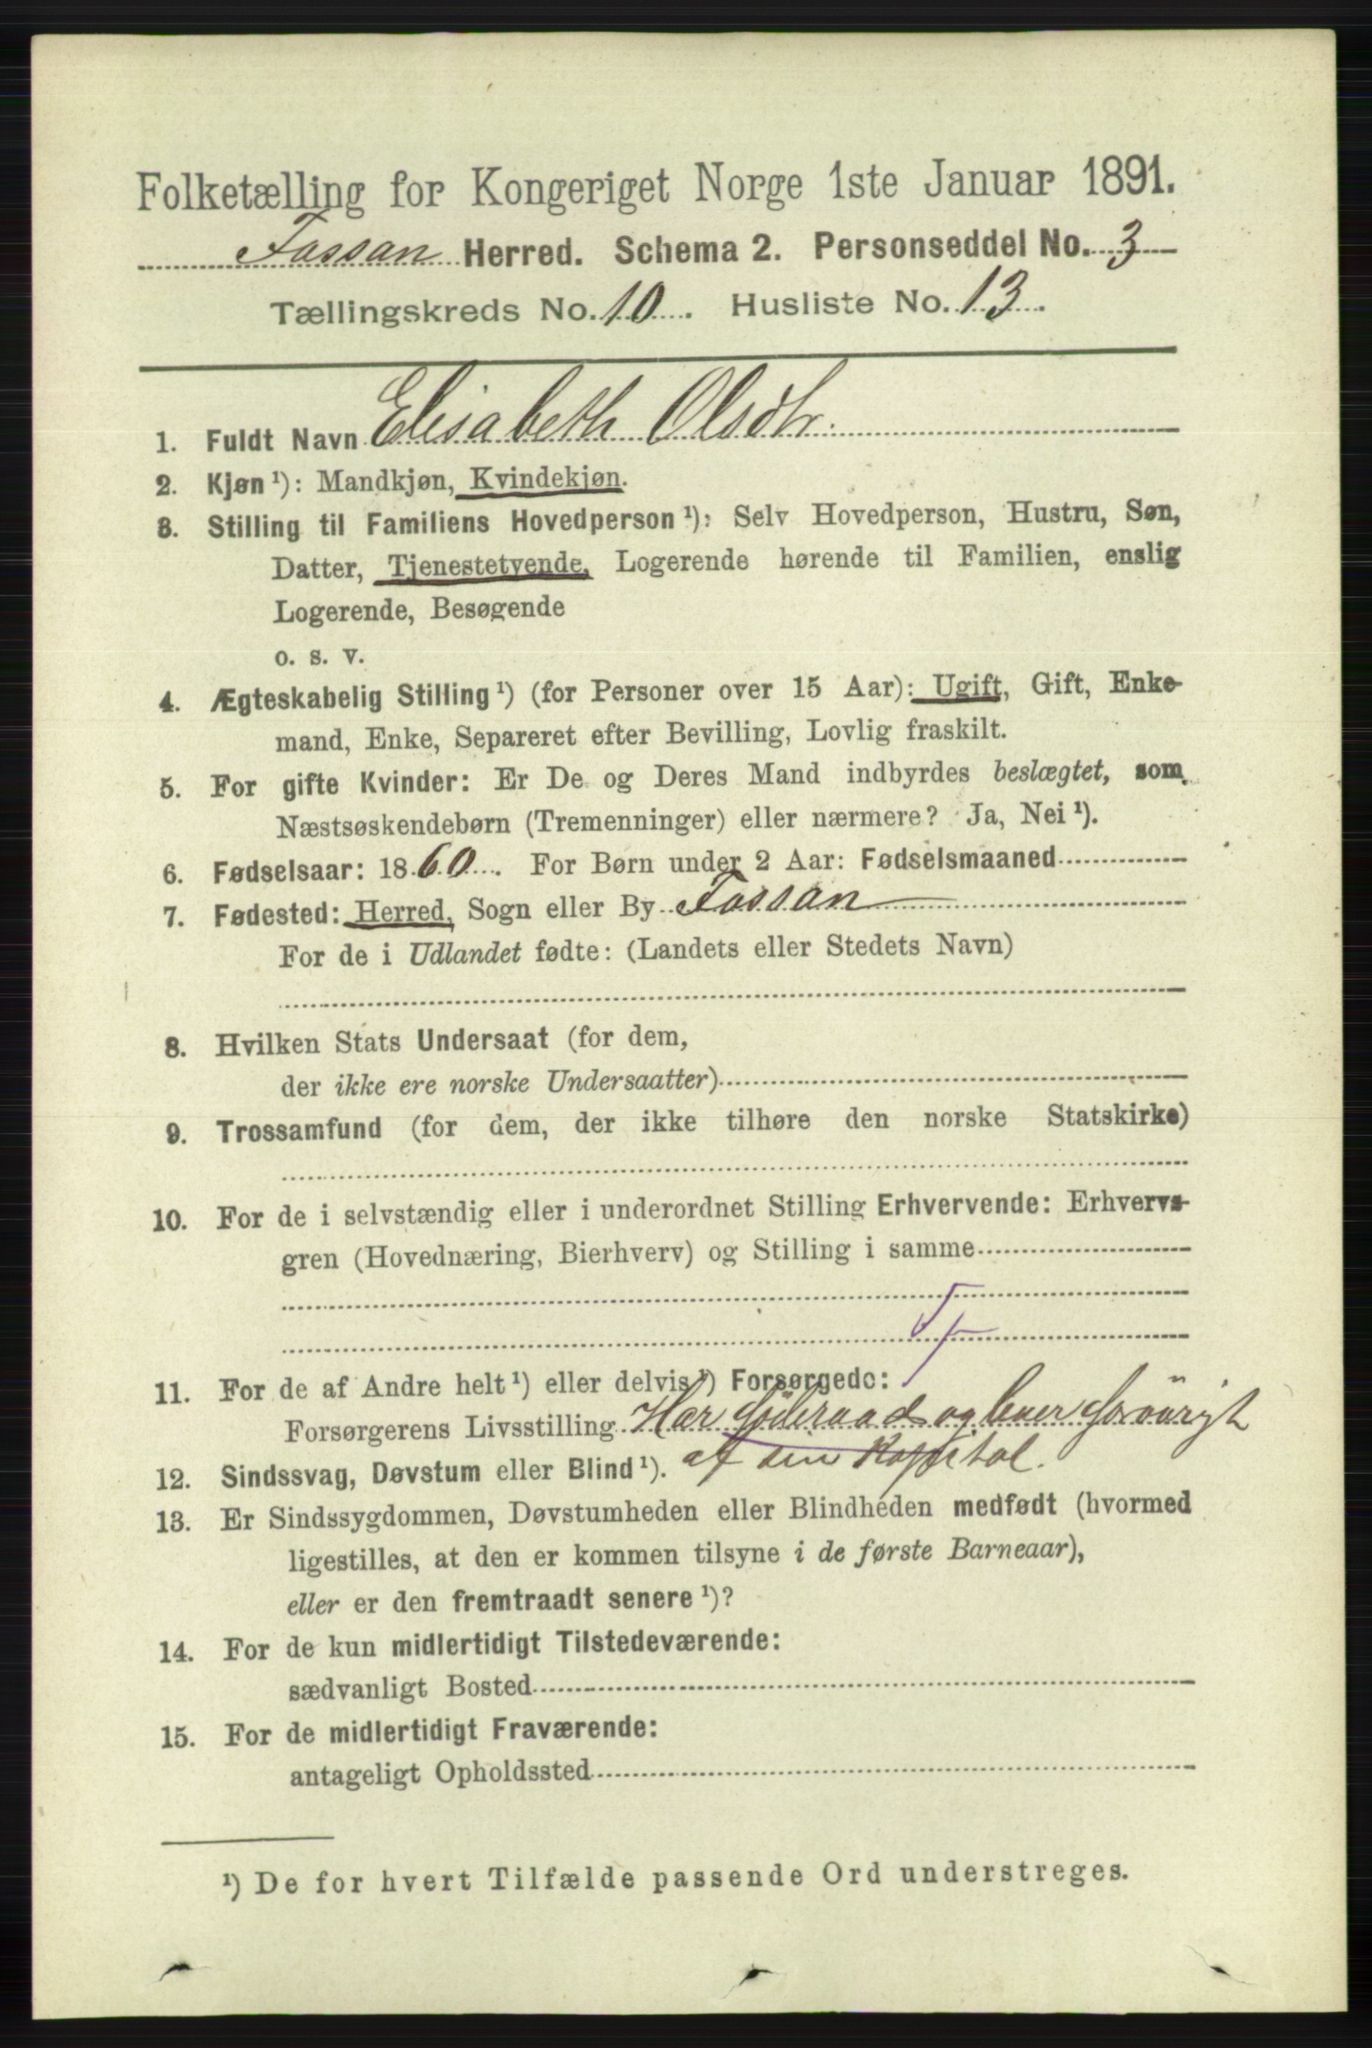 Folketælling for Kongeriget Norge 1ste Januar 1891.
Fossan Herred. Schema 2. Personseddel No. 3
Tællingskreds No. 10. Husliste No. 13.
1. Fuldt Navn Elisabeth Olsdtr.
2. Kjøn ¹): Mandkjøn, Kvindekjøn.
3. Stilling til Familiens Hovedperson ¹): Selv Hovedperson, Hustru, Søn,
Datter, Tjenestetyende, Logerende hørende til Familien, enslig
Logerende, Besøgende
o. s. v.
4. Ægteskabelig Stilling ¹) (for Personer over 15 Aar): Ugift, Gift, Enke-
mand, Enke, Separeret efter Bevilling, Lovlig fraskilt.
5. For gifte Kvinder: Er De og Deres Mand indbyrdes beslægtet, som
Næstsøskendebørn (Tremenninger) eller nærmere? Ja, Nei ¹).
6. Fødselsaar: 1860. For Børn under 2 Aar: Fødselsmaaned
7. Fødested: Herred, Sogn eller By Fossan
For de i Udlandet fødte: (Landets eller Stedets Navn)
8. Hvilken Stats Undersaat (for dem,
der ikke ere norske Undersaatter)
9. Trossamfund (for dem, der ikke tilhøre den norske Statskirke)
10. For de i selvstændig eller i underordnet Stilling Erhvervende: Erhvervs-
gren (Hovednæring, Bierhverv) og Stilling i samme
11. For de af Andre helt ¹) eller delvis ¹) Forsørgede:
Forsørgerens Livsstilling Har Föderaad og lever forövrigt
af sin Kapital.
12. Sindssvag, Døvstum eller Blind ¹).
13. Er Sindssygdommen, Døvstumheden eller Blindheden medfødt (hvormed
ligestilles, at den er kommen tilsyne i de første Barneaar),
eller er den fremtraadt senere ¹)?
14. For de kun midlertidigt Tilstedeværende:
sædvanligt Bosted
15. For de midlertidigt Fraværende:
antageligt Opholdssted
¹) De for hvert Tilfælde passende Ord understreges.